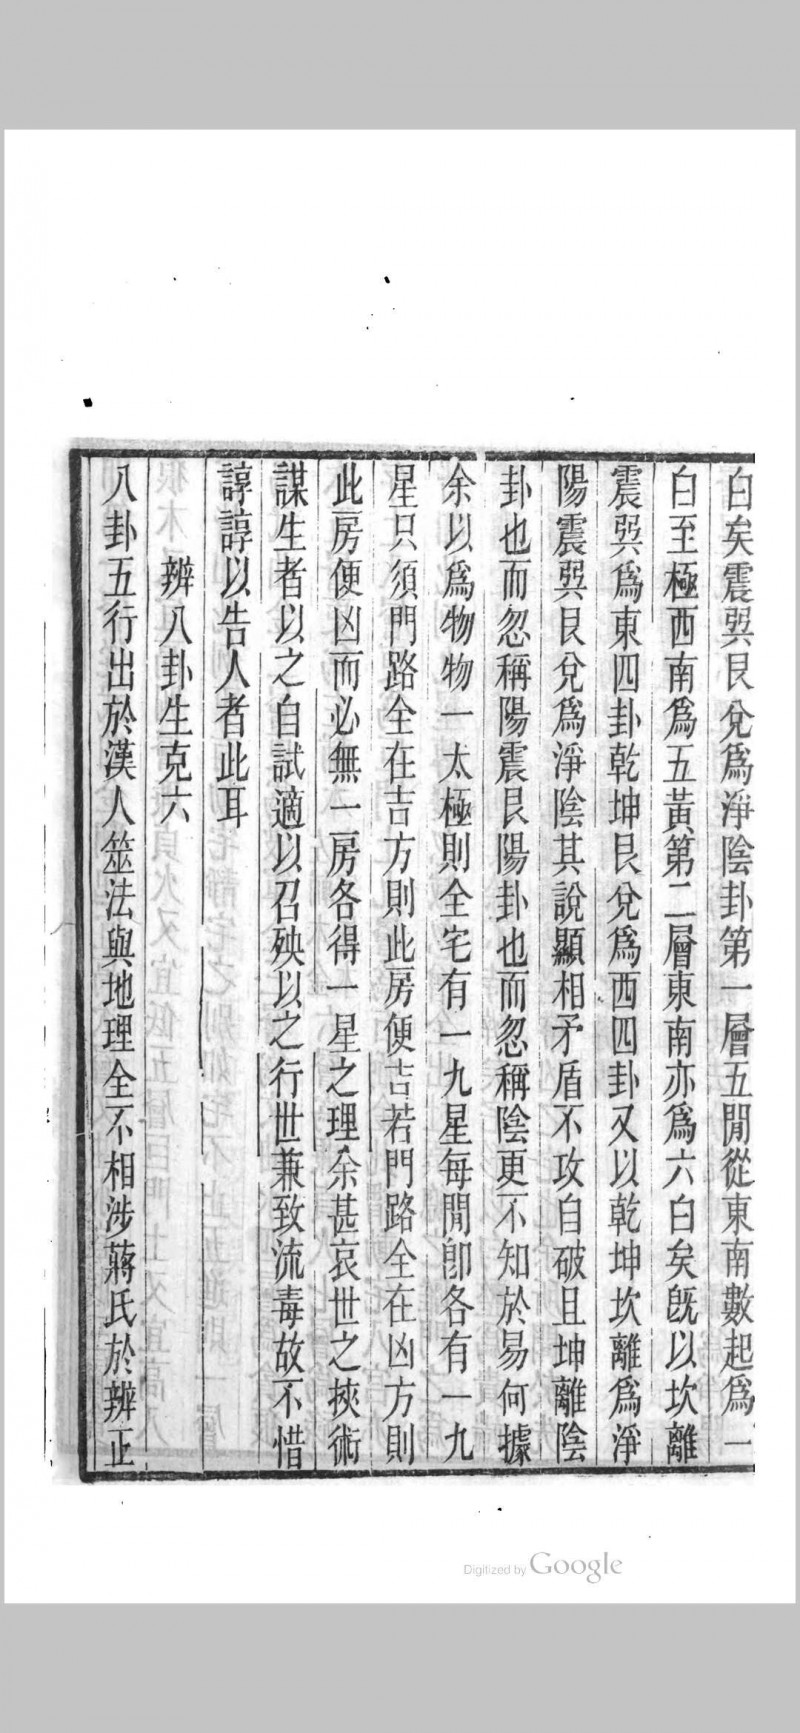 白矣震巽艮兌爲淨陰卦第一層五閒從東南數起爲一
白至極西南爲五黃第二層東南亦爲六白矣旣以坎離
震巽爲東四卦乾坤艮兌爲西四卦又以乾坤坎離爲淨
陽震巽艮兌爲淨陰其說顯相矛盾不攻自破且坤離陰
卦也而忽稱陽震艮陽卦也而忽稱陰更不知於易何據
余以爲物物一太極則全宅有一九星每閒卽各有一九
星只須門路全在吉方則此房便吉若門路全在凶方則
此房便凶而必無一房各得一星之理余甚哀世之挾術
謀生者以之自試適以召殃以之行世兼致流毒故不惜
諄諄以告人者此耳
辨八卦生克六
八卦五行出於漢人筮法與地理全不相涉蔣氏於辨正
Digitized by Google